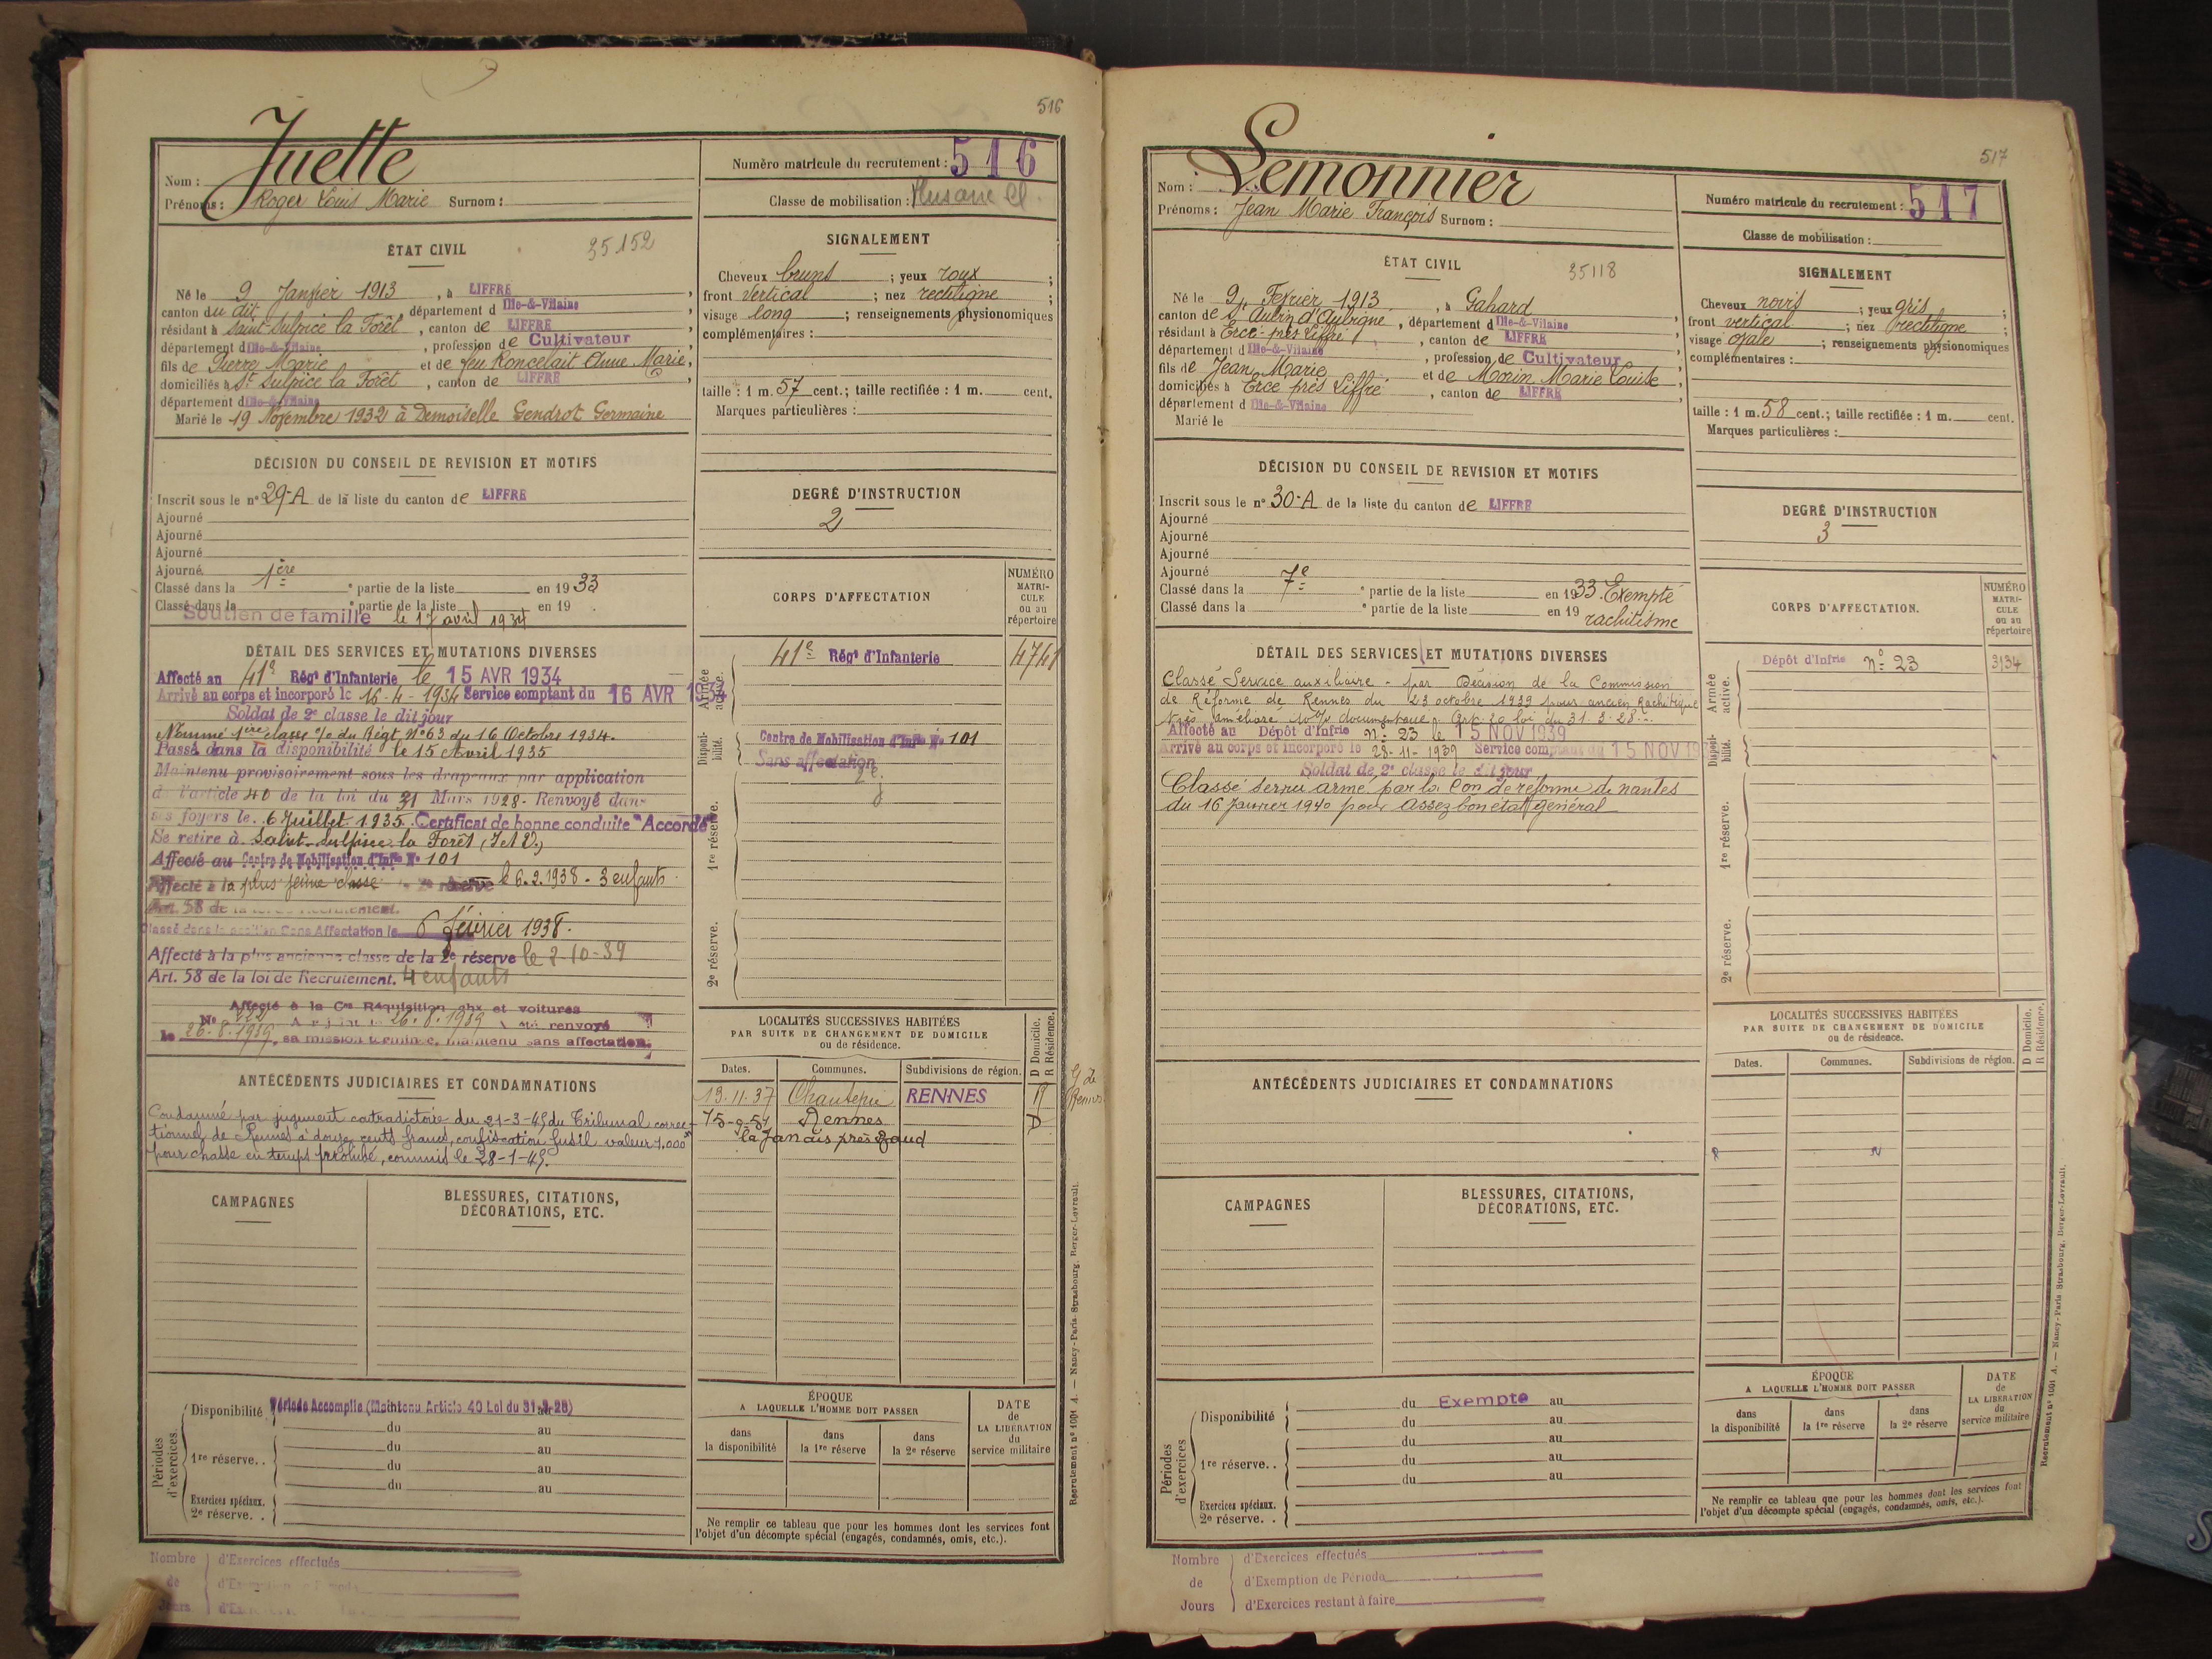 516
Juette
Nom :
Prénoms : Roger Louis Marie Surnom :
Numéro matricule du recrutement : 516
Classe de mobilisation :
ÉTAT CIVIL
35152
Né le 9 Janvier 1913, à LIFFRE
canton du dit, département d Ille-&-Vilaine
résidant à Saint-Sulpice la Forêt, canton de LIFFRE
département d Ille-&-Vilaine, profession de Cultivateur
fils de Pierre Marie et de feu Roncelait Anne Marie,
domiciliés à St Sulpice la Forêt, canton de LIFFRE
département d Ille-&-Vilaine
Marié le 19 Novembre 1932 à Demoiselle Gendrot Germaine
SIGNALEMENT
Cheveux bruns ; yeux roux ;
front vertical ; nez rectiligne ;
visage long ; renseignements physionomiques
complémentaires :
taille : 1 m. 57 cent. ; taille rectifiée : 1 m. cent.
Marques particulières :
DÉCISION DU CONSEIL DE REVISION ET MOTIFS
Inscrit sous le n° 29-A de la liste du canton de LIFFRE
Ajourné
Ajourné
Ajourné
Ajourné
Classé dans la 1ère partie de la liste en 1933
Classé dans la partie de la liste en 19
Soutien de famille le 17 avril 1934
DEGRÉ D'INSTRUCTION
2
CORPS D'AFFECTATION
NUMÉRO MATRI-CULE ou au répertoire
Armée active.
41e Régt d'Infanterie 4741
Disponi-bilité.
Centre de Mobilisation d'Infie N° 101
Sans affectation
1re réserve.
2e réserve.
DÉTAIL DES SERVICES ET MUTATIONS DIVERSES
Affecté au 41e Régt d'Infanterie le 15 AVR 1934
Arrivé au corps et incorporé le 16-4-1934 Service comptant du 16 AVR 1934
Soldat de 2e classe le dit jour
Nommé 1ère classe % du Régt N°63 du 16 Octobre 1934.
Passé dans la disponibilité le 15 Avril 1935
Maintenu provisoirement sous les drapeaux par application
à l'article 40 de la loi du 31 Mars 1928. Renvoyé dans
ses foyers le 6 Juillet 1935. Certificat de bonne conduite "Accordé"
Se retire à Saint-Sulpice la Forêt (I et V.)
Affecté au Centre de Mobilisation d'Infie N° 101
Affecté à la plus jeune classe réserve le 6.2.1938 - 3 enfants.
Art. 58 de la loi de Recrutement.
Classé dans la position Sans Affectation le 6 février 1938.
Affecté à la plus ancienne classe de la 2e réserve le 2-10-39
Art. 58 de la loi de Recrutement. 4 enfants
Affecté à la Con Réquisition chx et voitures
N° 222 A rejoint le 26.8.1939 A été renvoyé
le 26.8.1939, sa mission terminée, maintenu sans affectation.
LOCALITÉS SUCCESSIVES HABITÉES
PAR SUITE DE CHANGEMENT DE DOMICILE
ou de résidence.
D Domicile. R Résidence.
Dates. Communes. Subdivisions de région.
13.11.37 Chantepie RENNES R
15-9-51 Rennes D
la Janais près Zaud
ANTÉCÉDENTS JUDICIAIRES ET CONDAMNATIONS
Condamné par jugement contradictoire du 21-3-45 du Tribunal correc-
tionnel de Rennes à douze cents francs, confiscation fusil valeur 1.000f
pour chasse en temps prohibé, commis le 28-1-45.
CAMPAGNES
BLESSURES, CITATIONS, DÉCORATIONS, ETC.
Périodes d'exercices.
Disponibilité Période Accomplie (Maintenu Article 40 Loi du 31-3-28)
du au
1re réserve. . du au
du au
du au
Exercices spéciaux.
2e réserve. .
ÉPOQUE
A LAQUELLE L'HOMME DOIT PASSER
dans la disponibilité
dans la 1re réserve
dans la 2e réserve
DATE de LA LIBÉRATION du service militaire
Ne remplir ce tableau que pour les hommes dont les services font
l'objet d'un décompte spécial (engagés, condamnés, omis, etc.).
Recrutement n° 1091 A. — Nancy-Paris-Strasbourg, Berger-Levrault.
Nombre de Jours
d'Exercices effectués
517
Lemonnier
Nom :
Prénoms : Jean Marie François Surnom :
Numéro matricule du recrutement : 517
Classe de mobilisation :
ÉTAT CIVIL
35118
Né le 24 Février 1913, à Gahard
canton de St Aubin d'Aubigné, département d Ille-&-Vilaine
résidant à Ercé-près Liffré, canton de LIFFRE
département d Ille-&-Vilaine, profession de Cultivateur
fils de Jean Marie et de Morin Marie Louise
domiciliés à Ercé près Liffré, canton de LIFFRE
département d Ille-&-Vilaine
Marié le
SIGNALEMENT
Cheveux noirs ; yeux gris ;
front vertical ; nez rectiligne ;
visage ovale ; renseignements physionomiques
complémentaires :
taille : 1 m. 58 cent. ; taille rectifiée : 1 m. cent.
Marques particulières :
DÉCISION DU CONSEIL DE REVISION ET MOTIFS
Inscrit sous le n° 30-A de la liste du canton de LIFFRE
Ajourné
Ajourné
Ajourné
Ajourné
Classé dans la 7e partie de la liste en 1933 Exempté
Classé dans la partie de la liste en 19 rachitisme
DEGRÉ D'INSTRUCTION
3
CORPS D'AFFECTATION.
NUMÉRO MATRI-CULE ou au répertoire
Armée active.
Dépôt d'Infrie n° 23 3134
Disponi-bilité.
1re réserve.
2e réserve.
DÉTAIL DES SERVICES ET MUTATIONS DIVERSES
Classé Service auxiliaire - par Décision de la Commission
de Réforme de Rennes du 23 octobre 1939 pour ancien Rachitique
très amélioré 10% documentaire. Art. 20 loi du 31-3-28
Affecté au Dépôt d'Infrie n° 23 le 15 NOV 1939
Arrivé au corps et incorporé le 28-11-1939 Service comptant du 15 NOV 19
Soldat de 2e classe le dit jour
Classé service armé par la Con de réforme de nantes
du 16 Janvier 1940 pour assez bon état général
LOCALITÉS SUCCESSIVES HABITÉES
PAR SUITE DE CHANGEMENT DE DOMICILE
ou de résidence.
D Domicile. R Résidence.
Dates. Communes. Subdivisions de région.
ANTÉCÉDENTS JUDICIAIRES ET CONDAMNATIONS
CAMPAGNES
BLESSURES, CITATIONS, DÉCORATIONS, ETC.
Périodes d'exercices
Disponibilité du Exempté au
du au
1re réserve. . du au
du au
du au
Exercices spéciaux.
2e réserve. .
ÉPOQUE
A LAQUELLE L'HOMME DOIT PASSER
dans la disponibilité
dans la 1re réserve
dans la 2e réserve
DATE de LA LIBÉRATION du service militaire
Ne remplir ce tableau que pour les hommes dont les services font
l'objet d'un décompte spécial (engagés, condamnés, omis, etc.).
Recrutement n° 1091 A. — Nancy-Paris-Strasbourg, Berger-Levrault.
Nombre de Jours
d'Exercices effectués
d'Exemption de Période
d'Exercices restant à faire